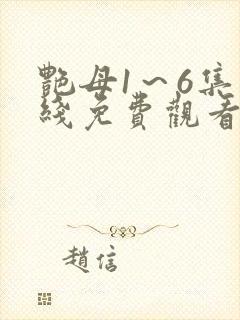 艷母1～6集
綫免費觀看
趙信